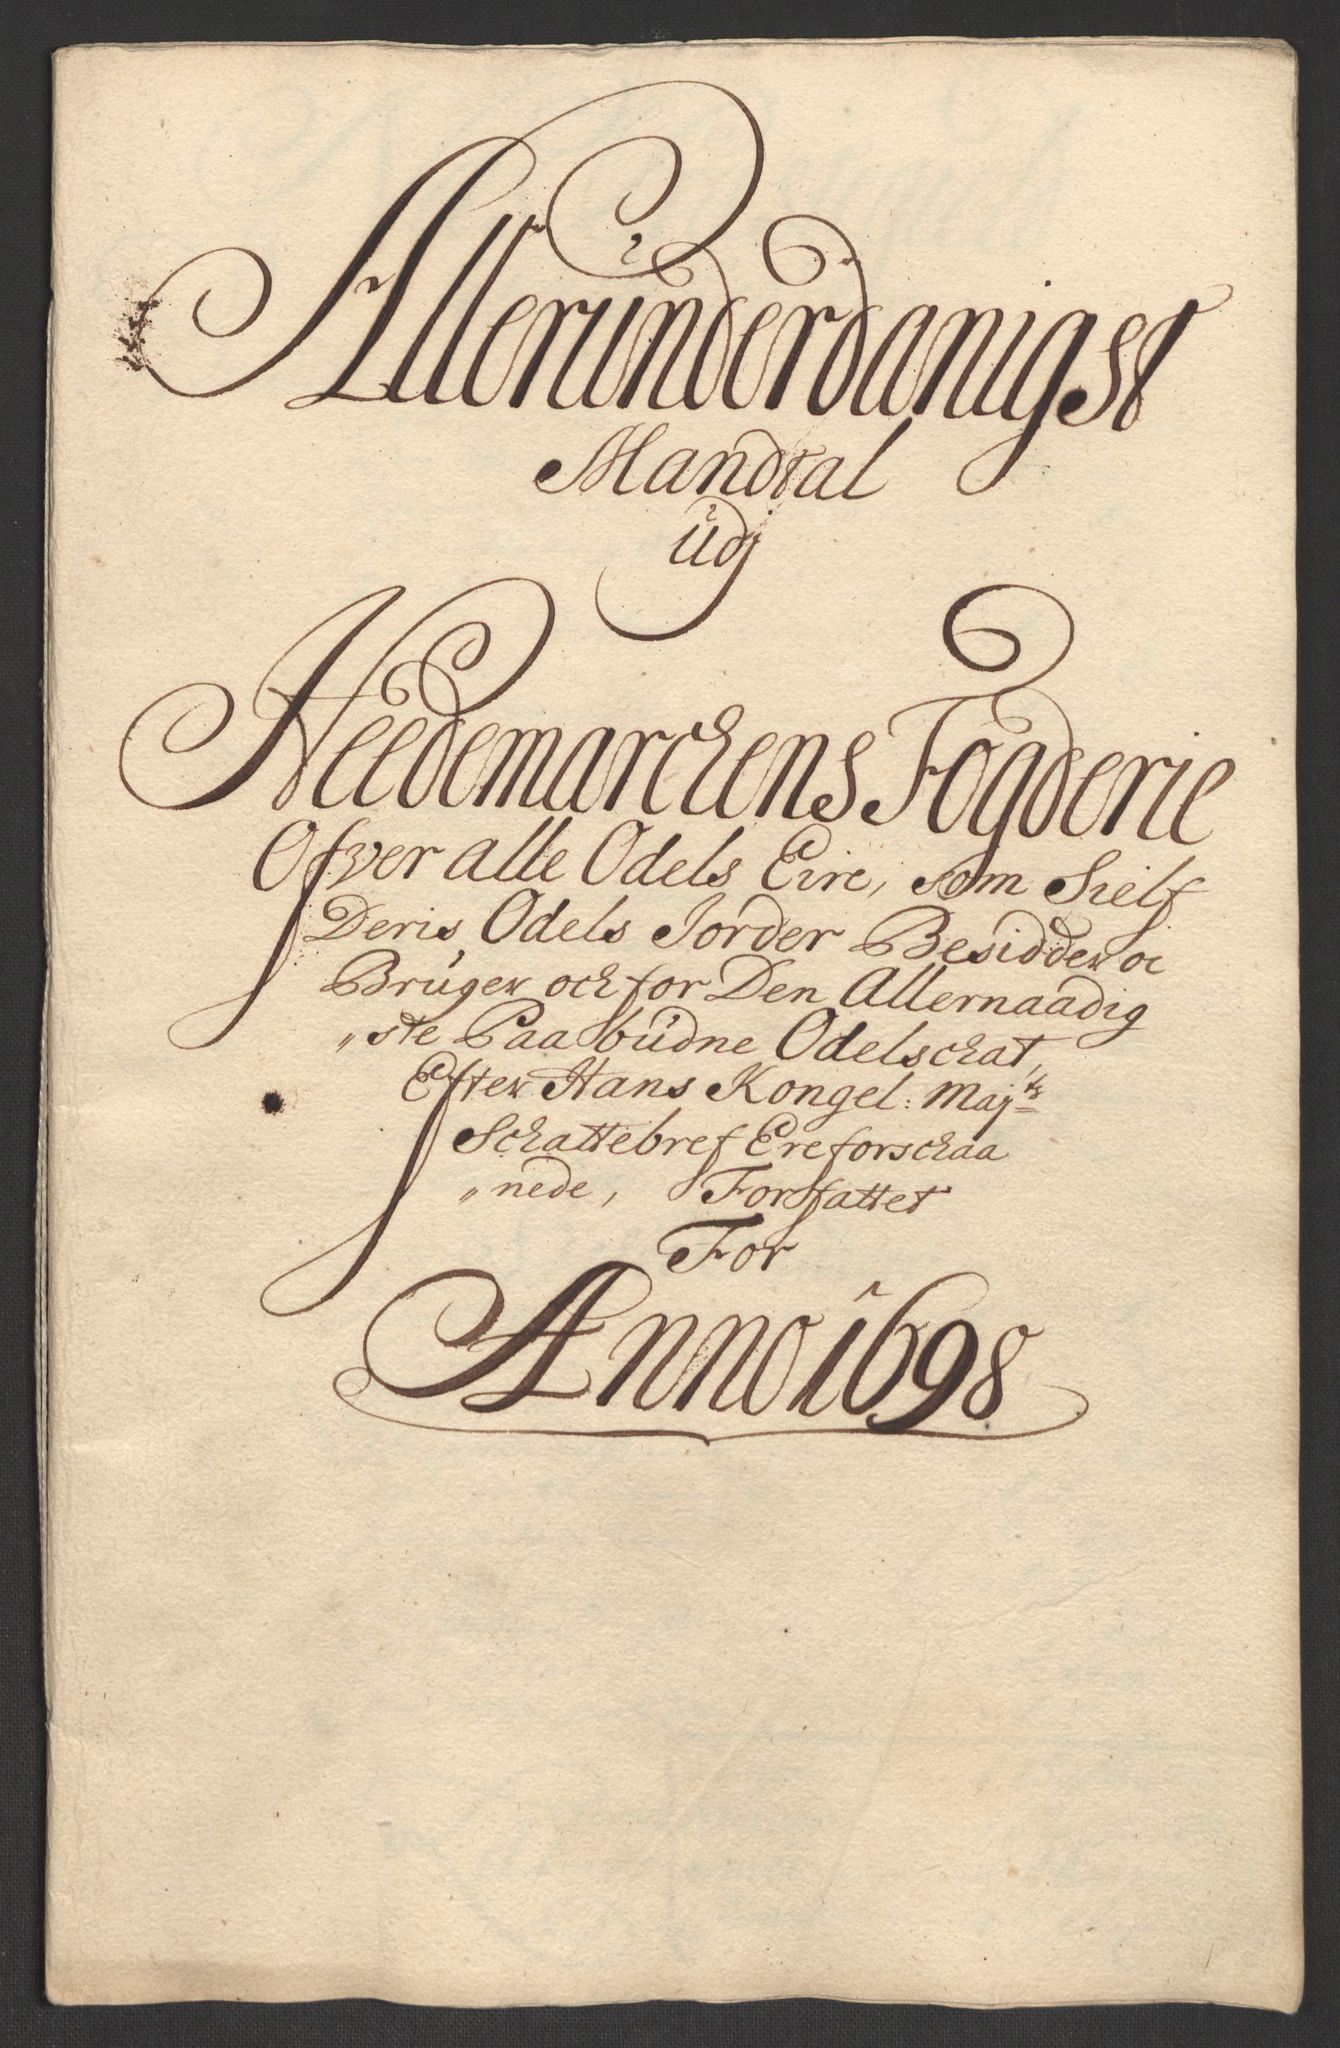 Alleründerdanigst
Mandtal
Udj
Heedemarchens Fogderie
Ofver alle Odels Eire, som Sielf
Deris Odels Jorder Besidder oc
Brúger och for Den Allernaadig
„ste Paabúdne Odelschat,
Efter Hans Kongel: Majts
Schattebref Ere forschaa
„nede, Forfattet
For
Anno 1698